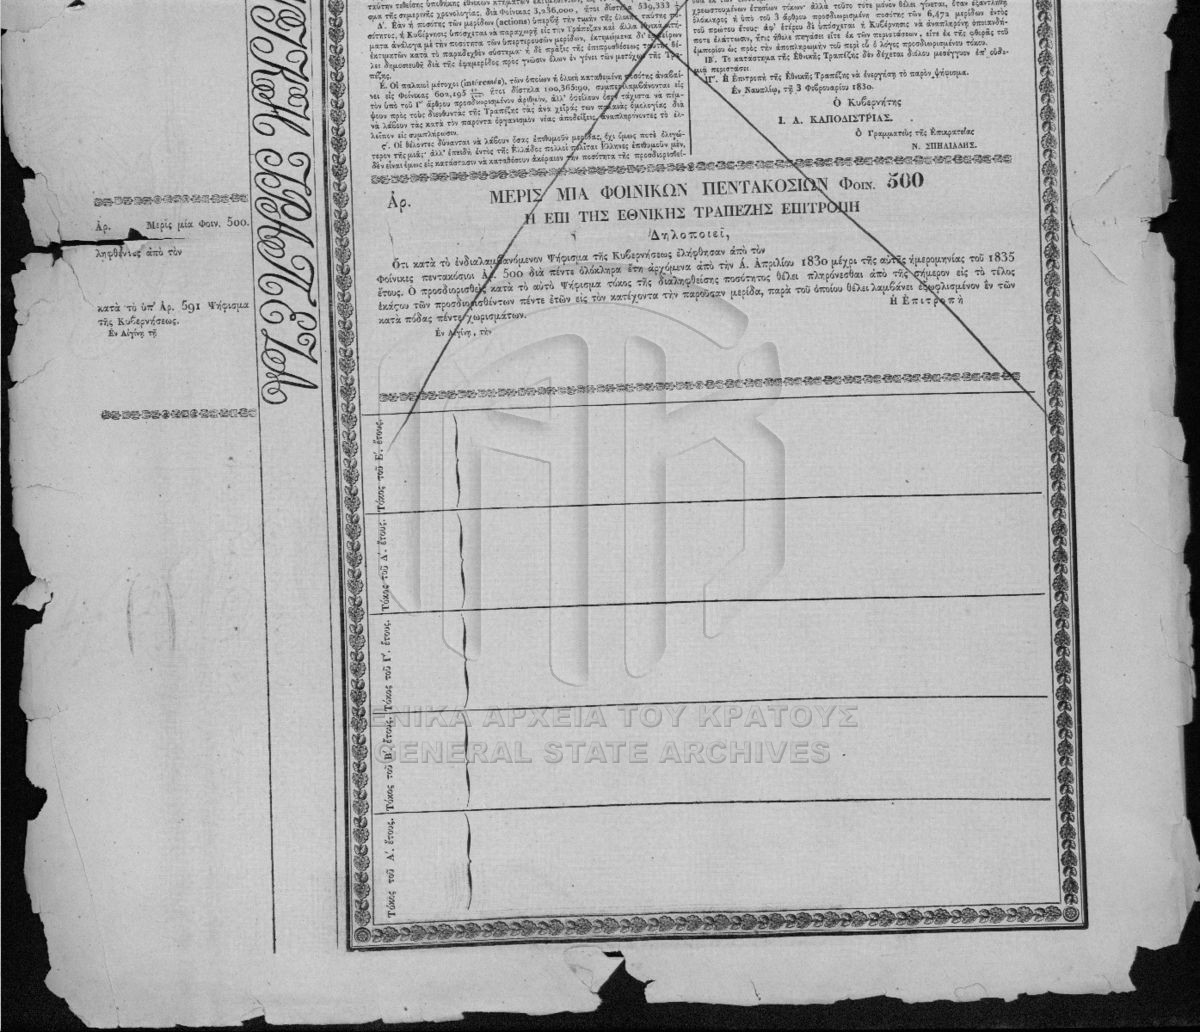 ταύτην τεθείσης ὑποθήκης ἐθνικῶν κτημάτων
σμα τῆς σημερινῆς χρονολογίας, διὰ Φοίνικας 3,236,000, ἤτοι δίστηλα 539,333
Δ'. Ἐὰν ἡ ποσότης τῶν μερίδων (actions) ὑπερβῇ τὴν τιμὴν τῆς ὁλικῆς ταύτης πο-
σότητος, ἡ Κυβέρνησις ὑπόσχεται νὰ παραχωρῇ εἰς τὴν Τράπεζαν καὶ ἄλλα ἐθνικὰ κτή-
ματα ἀνάλογα μὲ τὴν ποσότητα τῶν ὑπερτερουσῶν μερίδων, ἐκτιμώμενα δι' ἐμπείρων
ἐκτιμητῶν κατὰ τὸ παραδεχθὲν σύστημα· ἡ δὲ πρᾶξις τῆς ἐπιπροσθέσεως ταύτης θέ-
λει δημοσιευθῆ διὰ τῆς ἐφημερίδος πρὸς γνῶσιν ὅλων ἐν γένει τῶν μετόχων τῆς Τρα-
πέζης.
Ε. Οἱ παλαιοὶ μέτοχοι (intéressés), τῶν ὁποίων ἡ ὁλικὴ κατατεθειμένη ποσότης ἀναβαί-
νει εἰς Φοίνικας 602,195 ἤτοι δίστηλα 100,365:90, συμπεριλαμβάνονται εἰς
τὸν ὑπὸ τοῦ Γ' ἄρθρου προσδιορισμένον ἀριθμόν, ἀλλ' ὀφείλουν ὅσον τάχιστα νὰ πέμ-
ψουν πρὸς τοὺς διευθυντὰς τῆς Τραπέζης τὰς ἀνὰ χεῖράς των παλαιὰς ὁμολογίας διὰ
νὰ λάβουν τὰς κατὰ τὸν παρόντα ὀργανισμὸν νέας ἀποδείξεις, ἀναπληρώνοντες τὸ ἐλ-
λεῖπον εἰς συμπλήρωσιν.
ς'. Οἱ θέλοντες δύνανται νὰ λάβουν ὅσας ἐπιθυμοῦν μερίδας, ὄχι ὅμως ποτὲ ὀλιγώ-
τερον τῆς μιᾶς· ἀλλ' ἐπειδὴ ἐντὸς τῆς Ἑλλάδος πολλοὶ πολῖται Ἕλληνες ἐπιθυμοῦν μέν,
δὲν εἶναι ὅμως εἰς κατάστασιν νὰ καταθέσουν ἀκέραιον τὴν ποσότητα τῆς προσδιορισθεί-
χρεωστουμένων ἐτησίων τόκων· ἀλλὰ τοῦτο τότε μόνον θέλει γίνεται, ὅταν ἐξαντληθῇ
ὁλόκληρος ἡ ὑπὸ τοῦ 3 ἄρθρου προσδιωρισμένη ποσότης τῶν 6,472 μερίδων ἐντὸς
τοῦ πρώτου ἔτους· ἀφ' ἑτέρου δὲ ὑπόσχεται ἡ Κυβέρνησις νὰ ἀναπληρόνῃ ὁποιανδή-
ποτε ἐλάττωσιν, ἥτις ἤθελε πηγάσει εἴτε ἐκ τῶν περιστάσεων, εἴτε ἐκ τῆς φθορᾶς τοῦ
ἐμπορίου ὡς πρὸς τὴν ἀποπληρωμὴν τοῦ περὶ οὗ ὁ λόγος προσδιωρισμένου τόκου.
ΙΒ'. Τὸ κατάστημα τῆς Ἐθνικῆς Τραπέζης δὲν δέχεται διόλου μεσέγγυον ἐπ' οὐδε-
μιᾷ περιστάσει.
ΙΓ'. Ἡ Ἐπιτροπὴ τῆς Ἐθνικῆς Τραπέζης νὰ ἐνεργήσῃ τὸ παρὸν ψήφισμα.
Ἐν Ναυπλίῳ, τῇ 3 Φεβρουαρίου 1830.
Ὁ Κυβερνήτης
Ι. Α. ΚΑΠΟΔΙΣΤΡΙΑΣ.
Ὁ Γραμματεὺς τῆς Ἐπικρατείας
Ν. ΣΠΗΛΙΑΔΗΣ.
Ἀρ.
ΜΕΡΙΣ ΜΙΑ ΦΟΙΝΙΚΩΝ ΠΕΝΤΑΚΟΣΙΩΝ Φοιν. 500
Η ΕΠΙ ΤΗΣ ΕΘΝΙΚΗΣ ΤΡΑΠΕΖΗΣ ΕΠΙΤΡΟΠΗ
Δηλοποιεῖ,
Ὅτι κατὰ τὸ ἐνδιαλαμβανόμενον Ψήφισμα τῆς Κυβερνήσεως ἐλήφθησαν ἀπὸ τὸν
Φοίνικες πεντακόσιοι Ἀρ. 500 διὰ πέντε ὁλόκληρα ἔτη ἀρχόμενα ἀπὸ τὴν Ά. Ἀπριλίου 1830 μέχρι τῆς αὐτῆς ἡμερομηνίας τοῦ 1835
ἔτους. Ὁ προσδιορισθεὶς κατὰ τὸ αὐτὸ Ψήφισμα τόκος τῆς διαληφθείσης ποσότητος θέλει πληρόνεσθαι ἀπὸ τῆς σήμερον εἰς τὸ τέλος
ἑκάςου τῶν προσδιορισθέντων πέντε ἐτῶν εἰς τὸν κατέχοντα τὴν παροῦσαν μερίδα, παρὰ τοῦ ὁποίου θέλει λαμβάνει ἐξωφλισμένον ἓν τῶν
κατὰ πόδας πέντε χωρισμάτων.
Ἡ Ἐπιτροπὴ
Ἐν Αἰγίνῃ, τὴν
Ἀρ. Μερὶς μία Φοιν. 500.
ληφθέντας ἀπὸ τὸν
κατὰ τὸ ὑπ' Ἀρ. 591 Ψήφισμα
τῆς Κυβερνήσεως.
Ἐν Αἰγίνῃ τῇ
Τόκος τοῦ Ε'. ἔτους.
Τόκος τοῦ Δ'. ἔτους.
Τόκος τοῦ Γ'. ἔτους.
Τόκος τοῦ Β'. ἔτους.
Τόκος τοῦ Α'. ἔτους.
ΓΕΝΙΚΑ ΑΡΧΕΙΑ ΤΟΥ ΚΡΑΤΟΥΣ
GENERAL STATE ARCHIVES